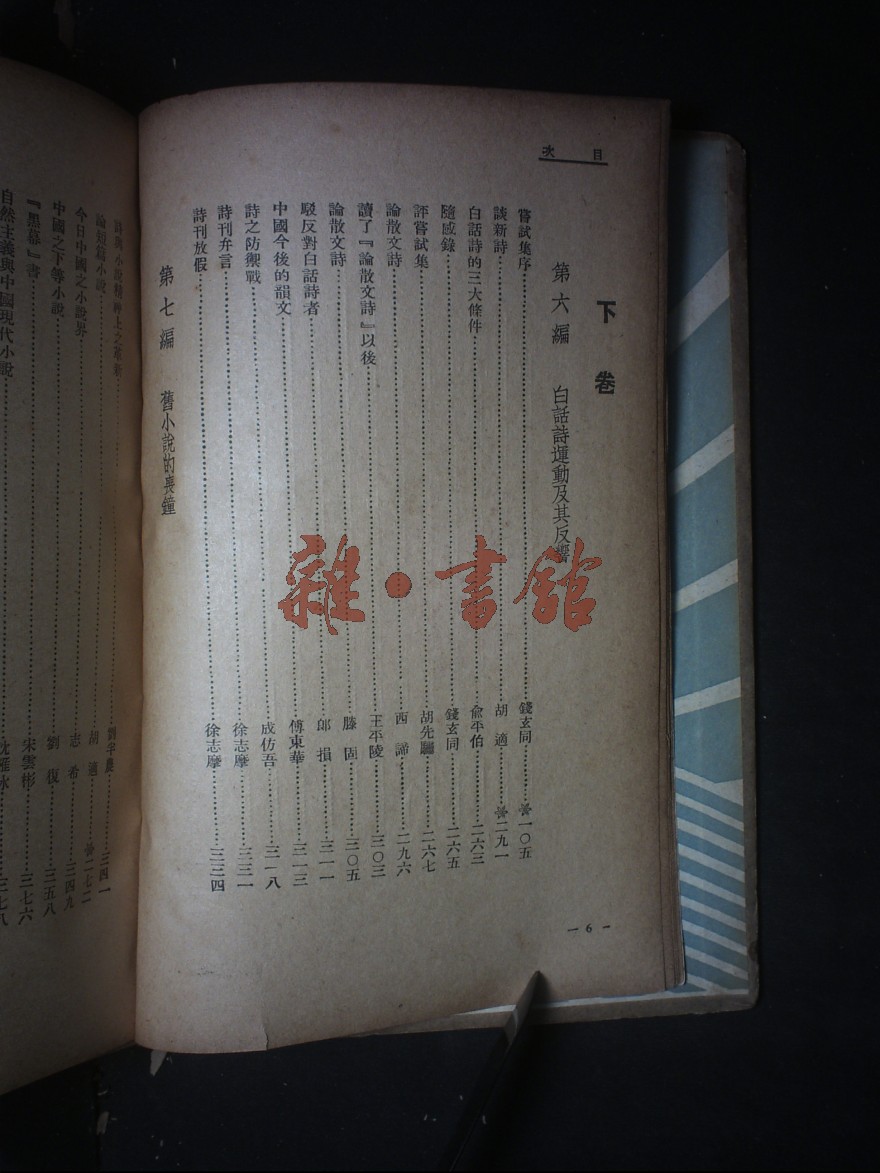 目次
下卷
第六編 白話詩運動及其反響
嘗試集序……錢玄同……※一〇五
談新詩……胡適……※二九一
白話詩的三大條件……俞平伯……二六三
隨感錄……錢玄同……二六五
評嘗試集……胡先驌……二六七
論散文詩……西諦……二九六
讀了『論散文詩』以後……王平陵……三〇三
論散文詩……滕固……三〇五
駁反對白話詩者……郎損……三一一
中國今後的韻文……傅東華……三一三
詩之防禦戰……成仿吾……三一八
詩刊弁言……徐志摩……三三一
詩刊放假……徐志摩……三三四
第七編 舊小說的喪鐘
－6－
詩與小說精神上之革新……劉半農……三四一
論短篇小說……胡適……※二七二
今日中國之小說界……志希……三四九
中國之下等小說……劉復……三五八
『黑幕』書……宋雲彬……三七六
自然主義與中國現代小說……沈雁冰……三七八
雜·書館